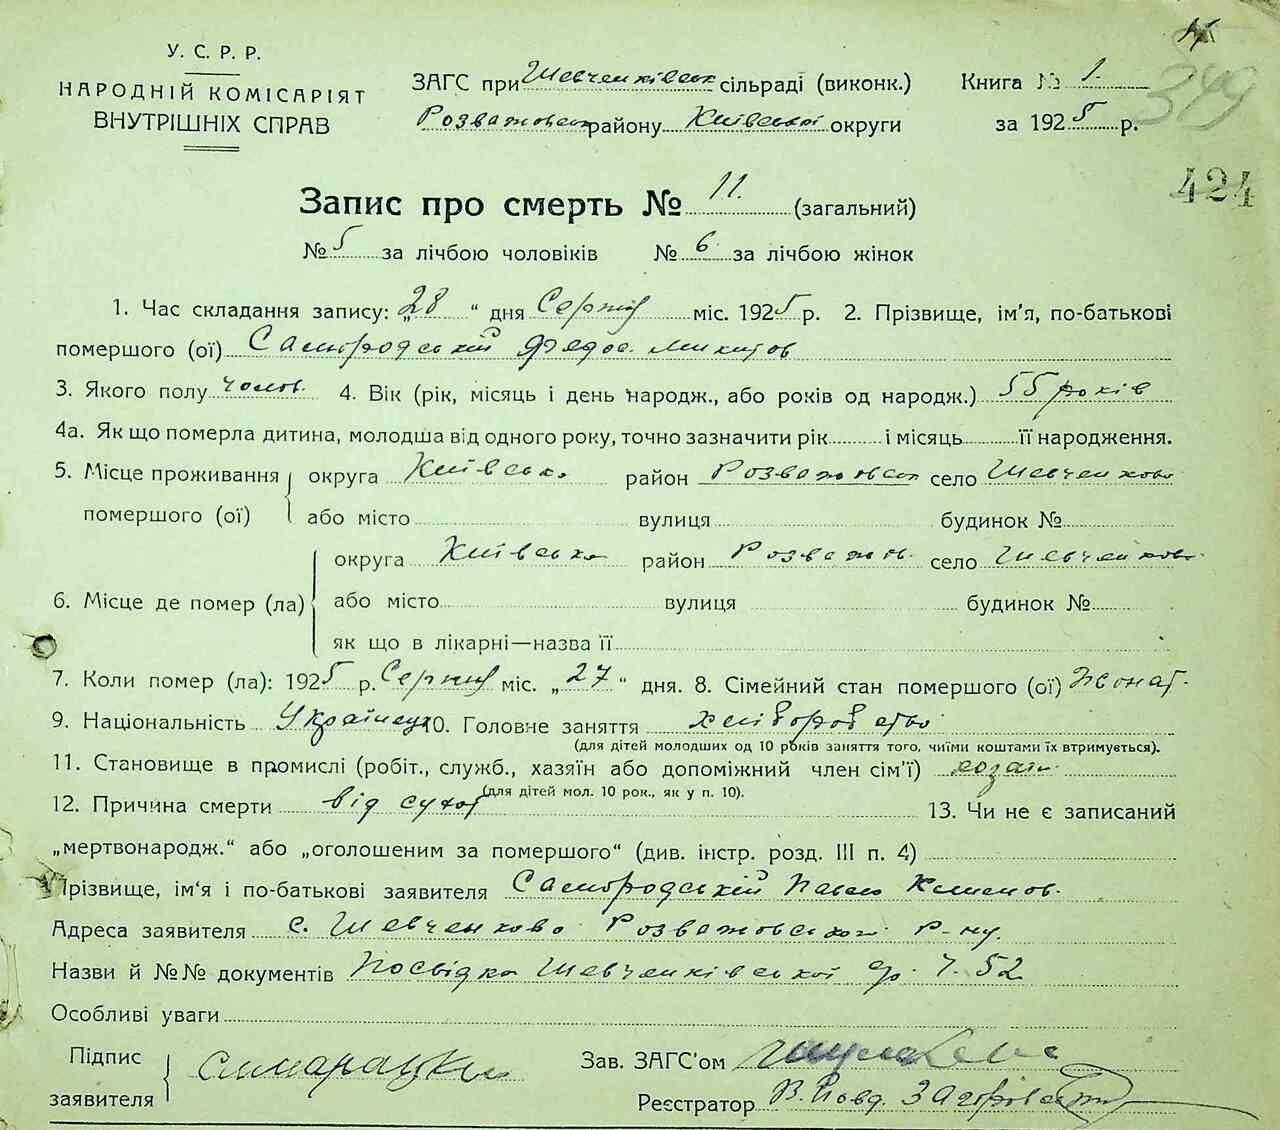 У. С. Р. Р.
НАРОДНІЙ КОМІСАРІЯТ
ВНУТРІШНІХ СПРАВ
ЗАГС при Шевченківськ сільраді (виконк.)
Розважовськ району Київської округи
Книга № 1.
за 1925 р.
349
424
Запис про смерть № 11. (загальний)
№ 5 за лічбою чоловіків № 6 за лічбою жінок
1. Час складання запису: „28“ дня Серпня міс. 1925 р. 2. Прізвище, ім'я, по-батькові
помершого (ої) Самородській Федос. Микитов
3. Якого полу чолов. 4. Вік (рік, місяць і день народж., або років од народж.) 55 років
4а. Як що померла дитина, молодша від одного року, точно зазначити рік і місяць її народження.
5. Місце проживання помершого (ої) округа Київськ. район Розважовськ село Шевченково
або місто вулиця будинок №
6. Місце де помер (ла) округа Київська район Розважов. село Шевченково
або місто вулиця будинок №
як що в лікарні—назва її
7. Коли помер (ла): 1925 р. Серпня міс. „27“ дня. 8. Сімейний стан помершого (ої) Жонат.
9. Національність Українець 10. Головне заняття хліборобство
(для дітей молодших од 10 років заняття того, чиїми коштами їх втримується).
11. Становище в промислі (робіт., служб., хазяїн або допоміжний член сім'ї) хозаїн
(для дітей мол. 10 рок., як у п. 10).
12. Причина смерти від сухот 13. Чи не є записаний
„мертвонародж.“ або „оголошеним за помершого“ (див. інстр. розд. III п. 4)
Прізвище, ім'я і по-батькові заявителя Самородській Павло Климов.
Адреса заявителя с. Шевченково Розважовськог р-ну.
Назви й №№ документів Посвідка Шевченківської Ч. 52
Особливі уваги
Підпис заявителя
Зав. ЗАГС'ом
Реєстратор